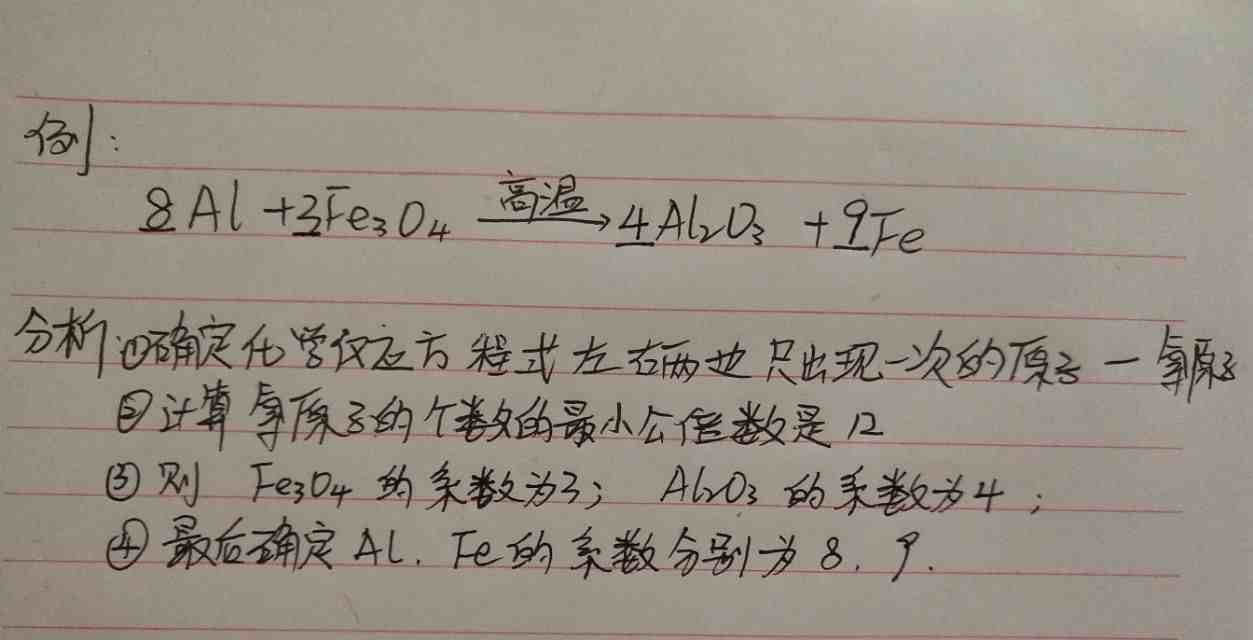 例:
8Al + 3Fe₃O₄ 高温→ 4Al₂O₃ + 9Fe
分析①确定化学反应方程式左右两边只出现一次的原子一氧原子
②计算氧原子的个数的最小公倍数是12
③则 Fe₃O₄ 的系数为3; Al₂O₃ 的系数为4;
④最后确定Al. Fe的系数分别为8. 9.